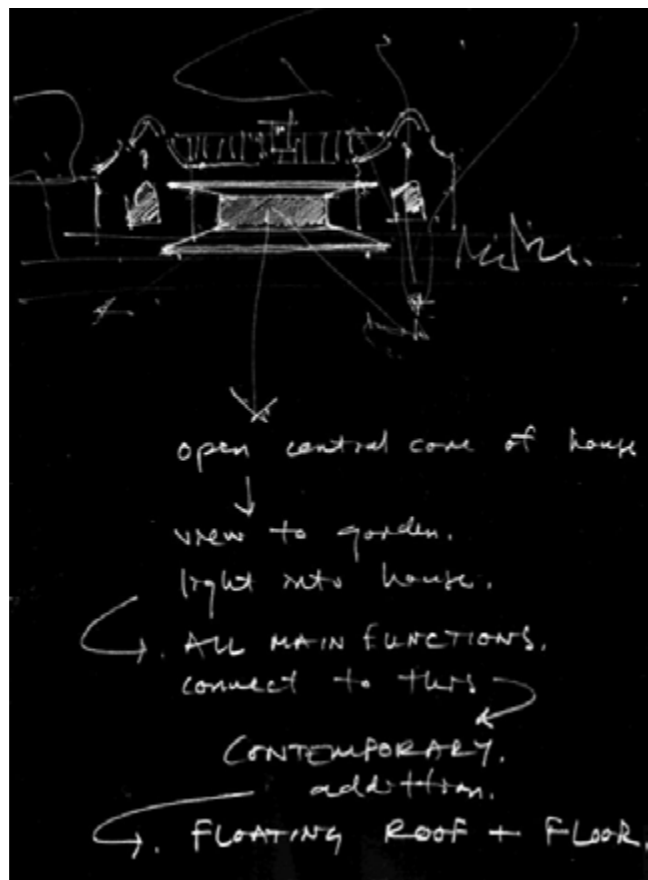 open central core of house
view to garden.
light into house.
. ALL MAIN FUNCTIONS.
connect to this
CONTEMPORARY.
addition.
. FLOATING ROOF + FLOOR.